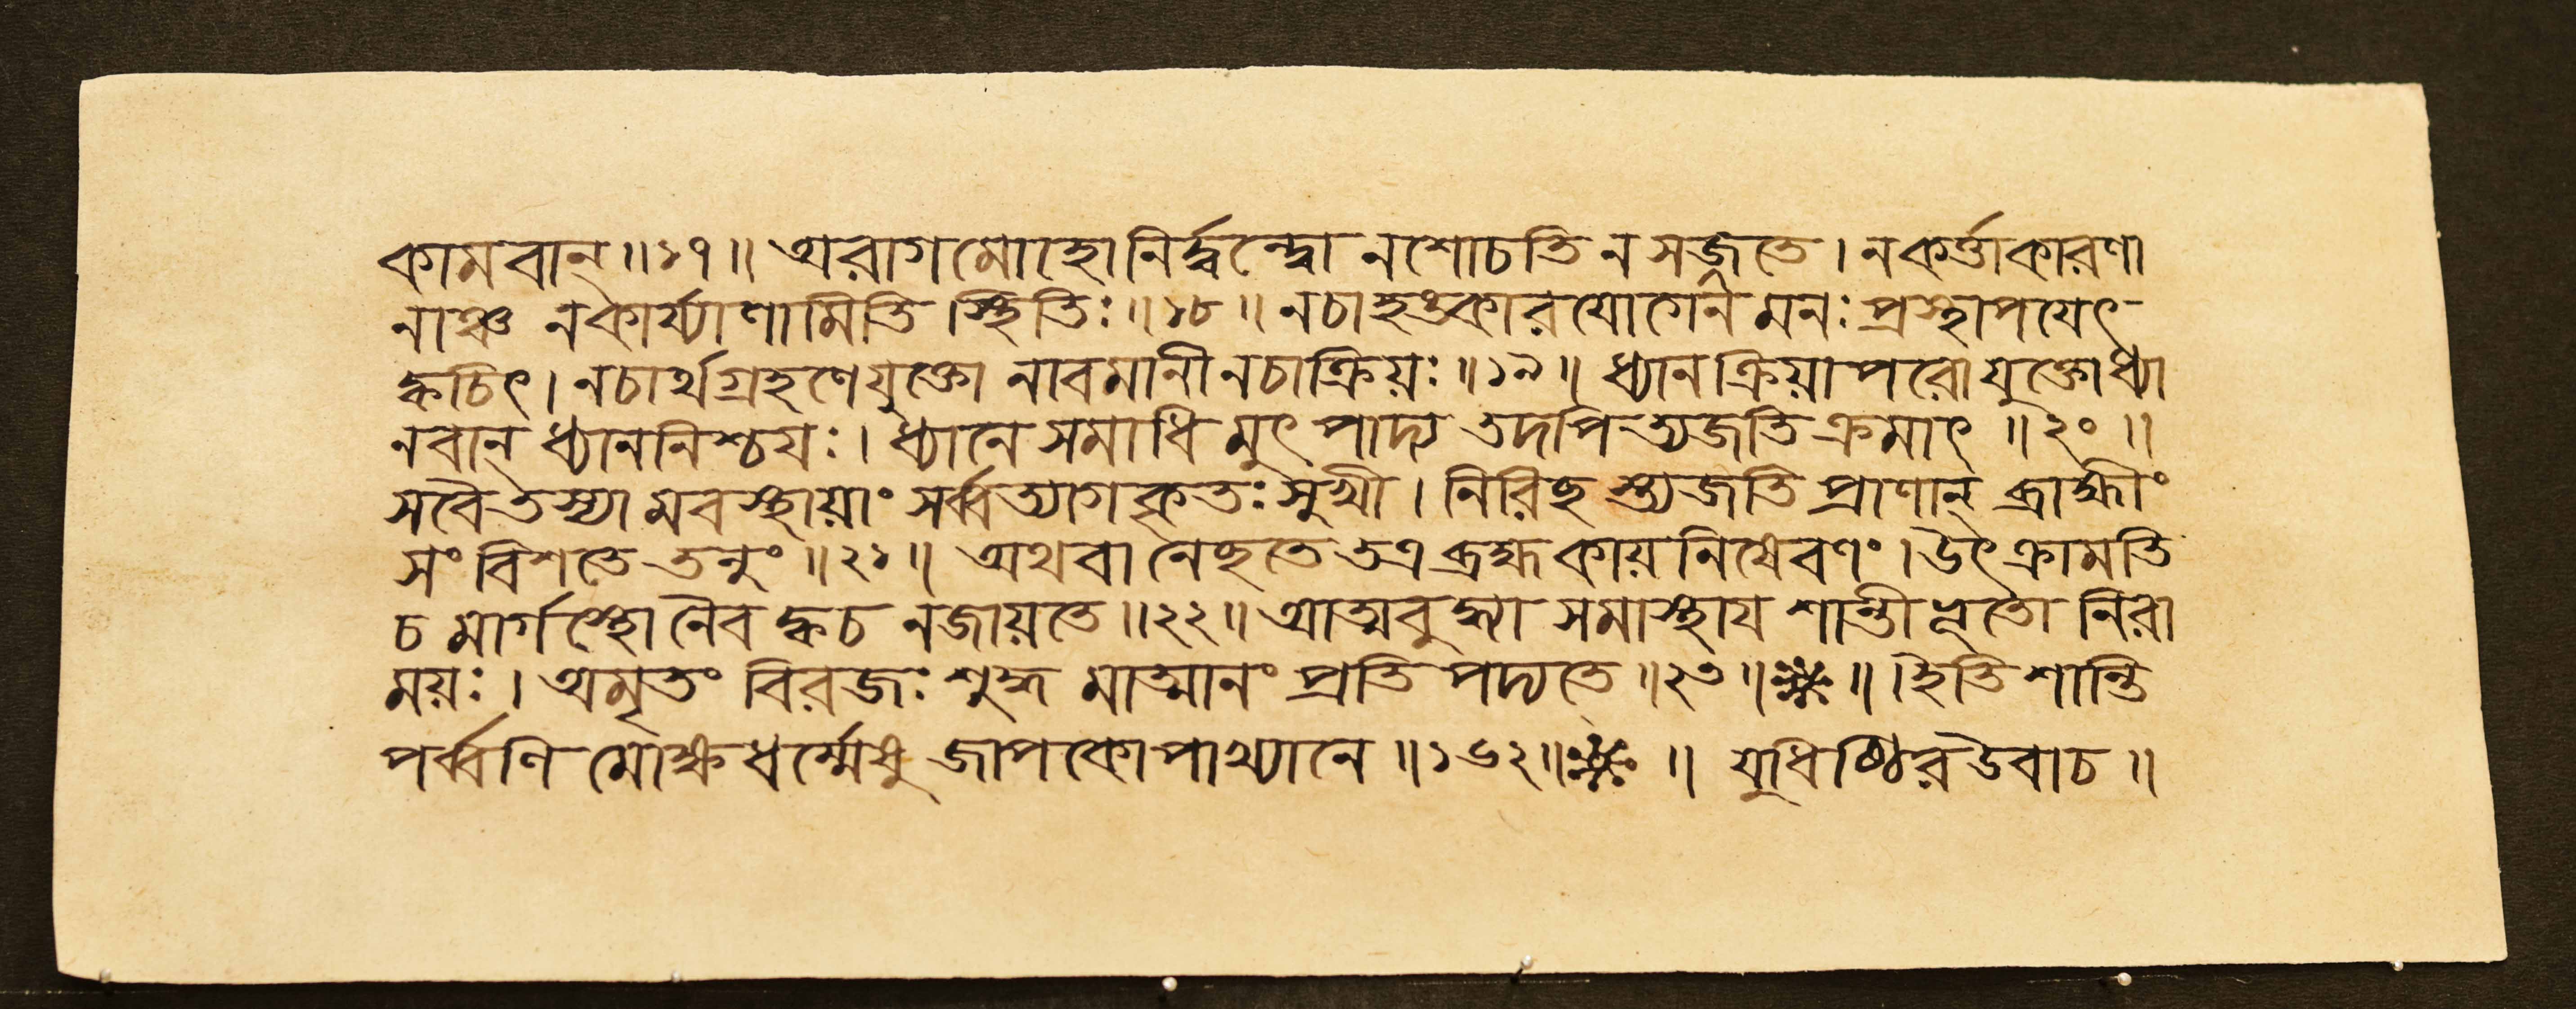 কামবান্॥১৭॥ অরাগমোহোনির্দ্বন্দ্বো নশোচতি ন সজ্জতে। নকর্ত্তাকারণা
নাঞ্চ নকার্য্যাণামিতি স্থিতিঃ॥১৮॥ নচাহঙ্কারযোগেন মনঃ প্রস্থাপযেৎ
ক্বচিৎ। নচার্থগ্রহণেযুক্তো নাবমানী নচাক্রিয়ঃ॥১৯॥ ধ্যানক্রিয়াপরোযুক্তোধ্যা
নবান্ ধ্যাননিশ্চযঃ। ধ্যানে সমাধি মুৎপাদ্য তদপি ত্যজতি ক্রমাৎ ॥২০॥
সবৈ তস্যা মবস্থায়াং সর্ব্বত্যাগ কৃতঃ সুখী। নিরিচ্ছ স্ত্যজতি প্রাণান্ ব্রাহ্মীং
সং বিশতে তনুং॥২১॥ অথবা নেচ্ছতে তত্র ব্রহ্ম কায়নিষেবণং। উৎক্রামতি
চ মার্গস্থো নৈব ক্বচ নজায়তে॥২২॥ আত্মবুদ্ধ্যা সমাস্থায শান্তীভূতো নিরা
ময়ঃ। অমৃতং বিরজঃ শুদ্ধ মাত্মানং প্রতি পদ্যতে॥২৩॥❋॥ ইতি শান্তি
পর্ব্বণি মোক্ষধর্ম্মেষু জাপকোপাখ্যানে॥১৬২॥❋॥ যুধিষ্ঠির উবাচ॥